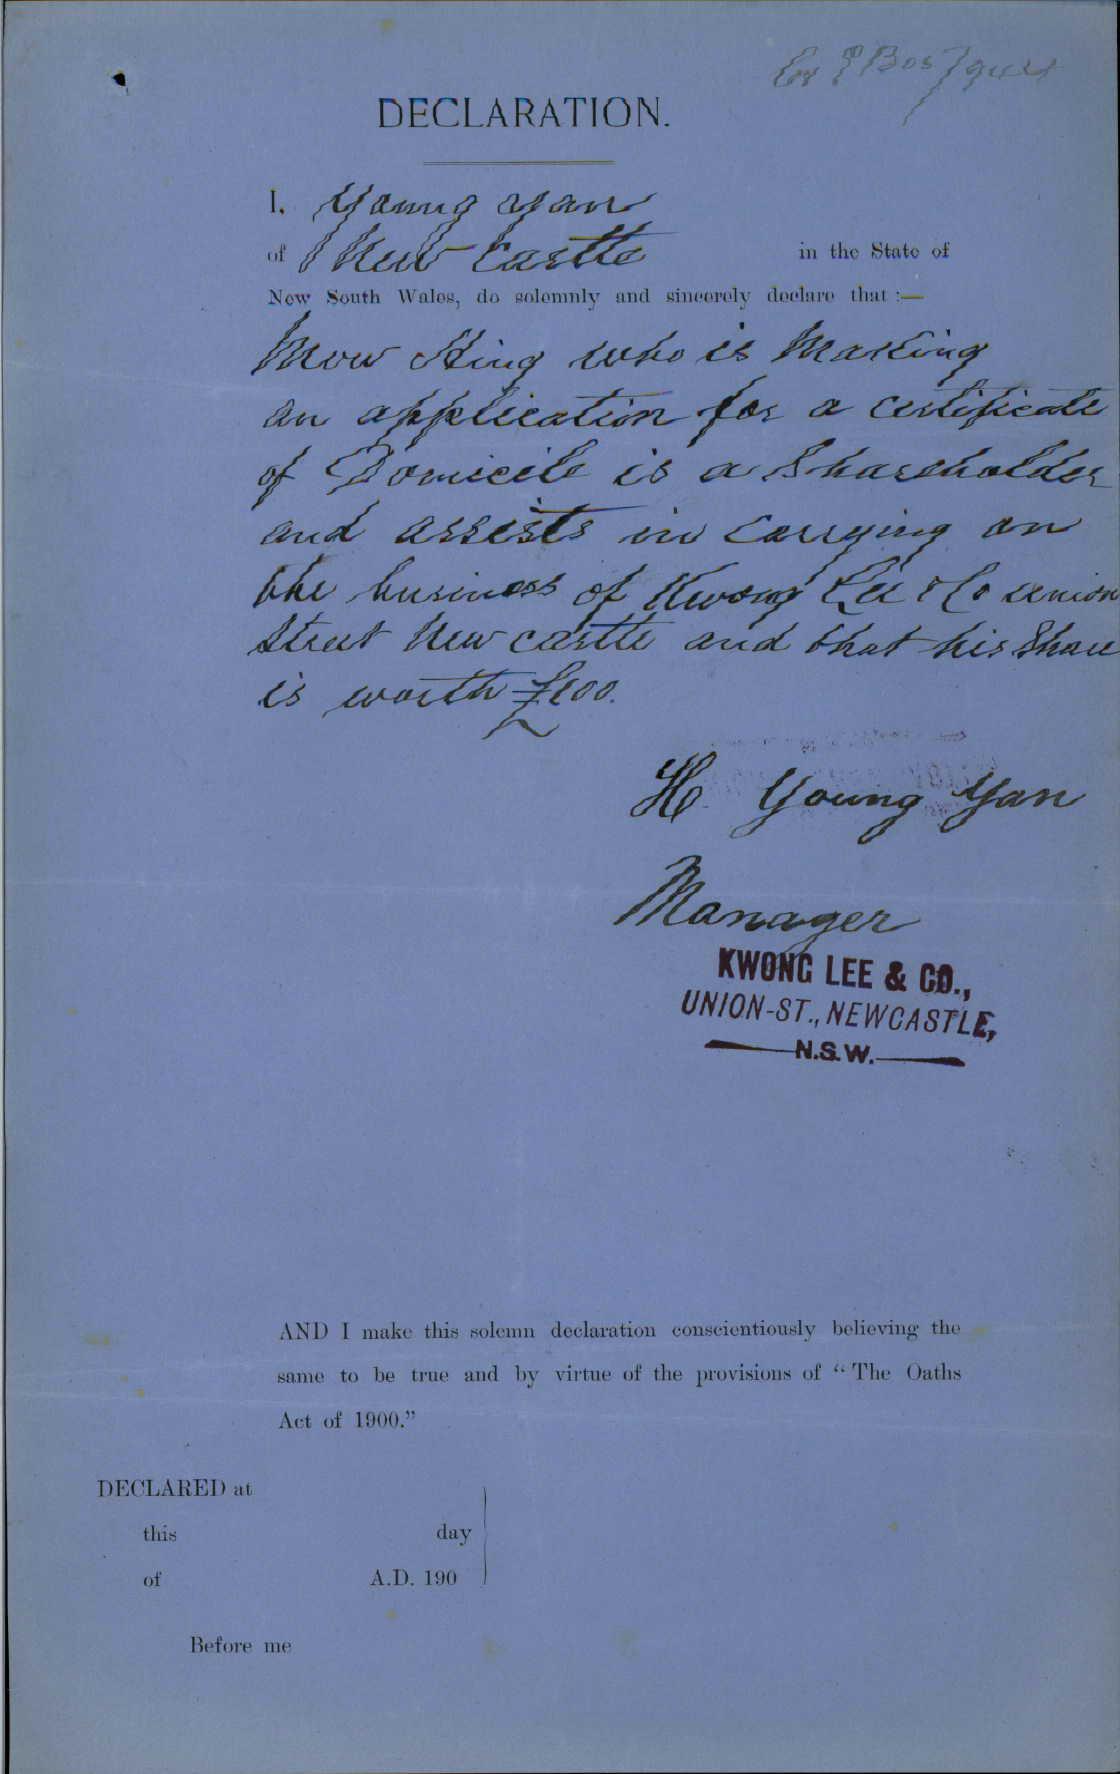 DECLARATION.
I, Young Yan
of New Castle in the State of
New South Wales, do solemnly and sincerely declare that :—
Mow Hing who is Making
an application for a certificate
of Domicile is a Shareholder
and assists in Carrying on
the business of Kwong Lee & Co union
Street New castle and that his Share
is worth £100.
H Young Yan
Manager
KWONG LEE & CO.,
UNION-ST., NEWCASTLE,
N.S.W.
AND I make this solemn declaration conscientiously believing the
same to be true and by virtue of the provisions of “The Oaths
Act of 1900.”
DECLARED at
this day
of A.D. 190
Before me